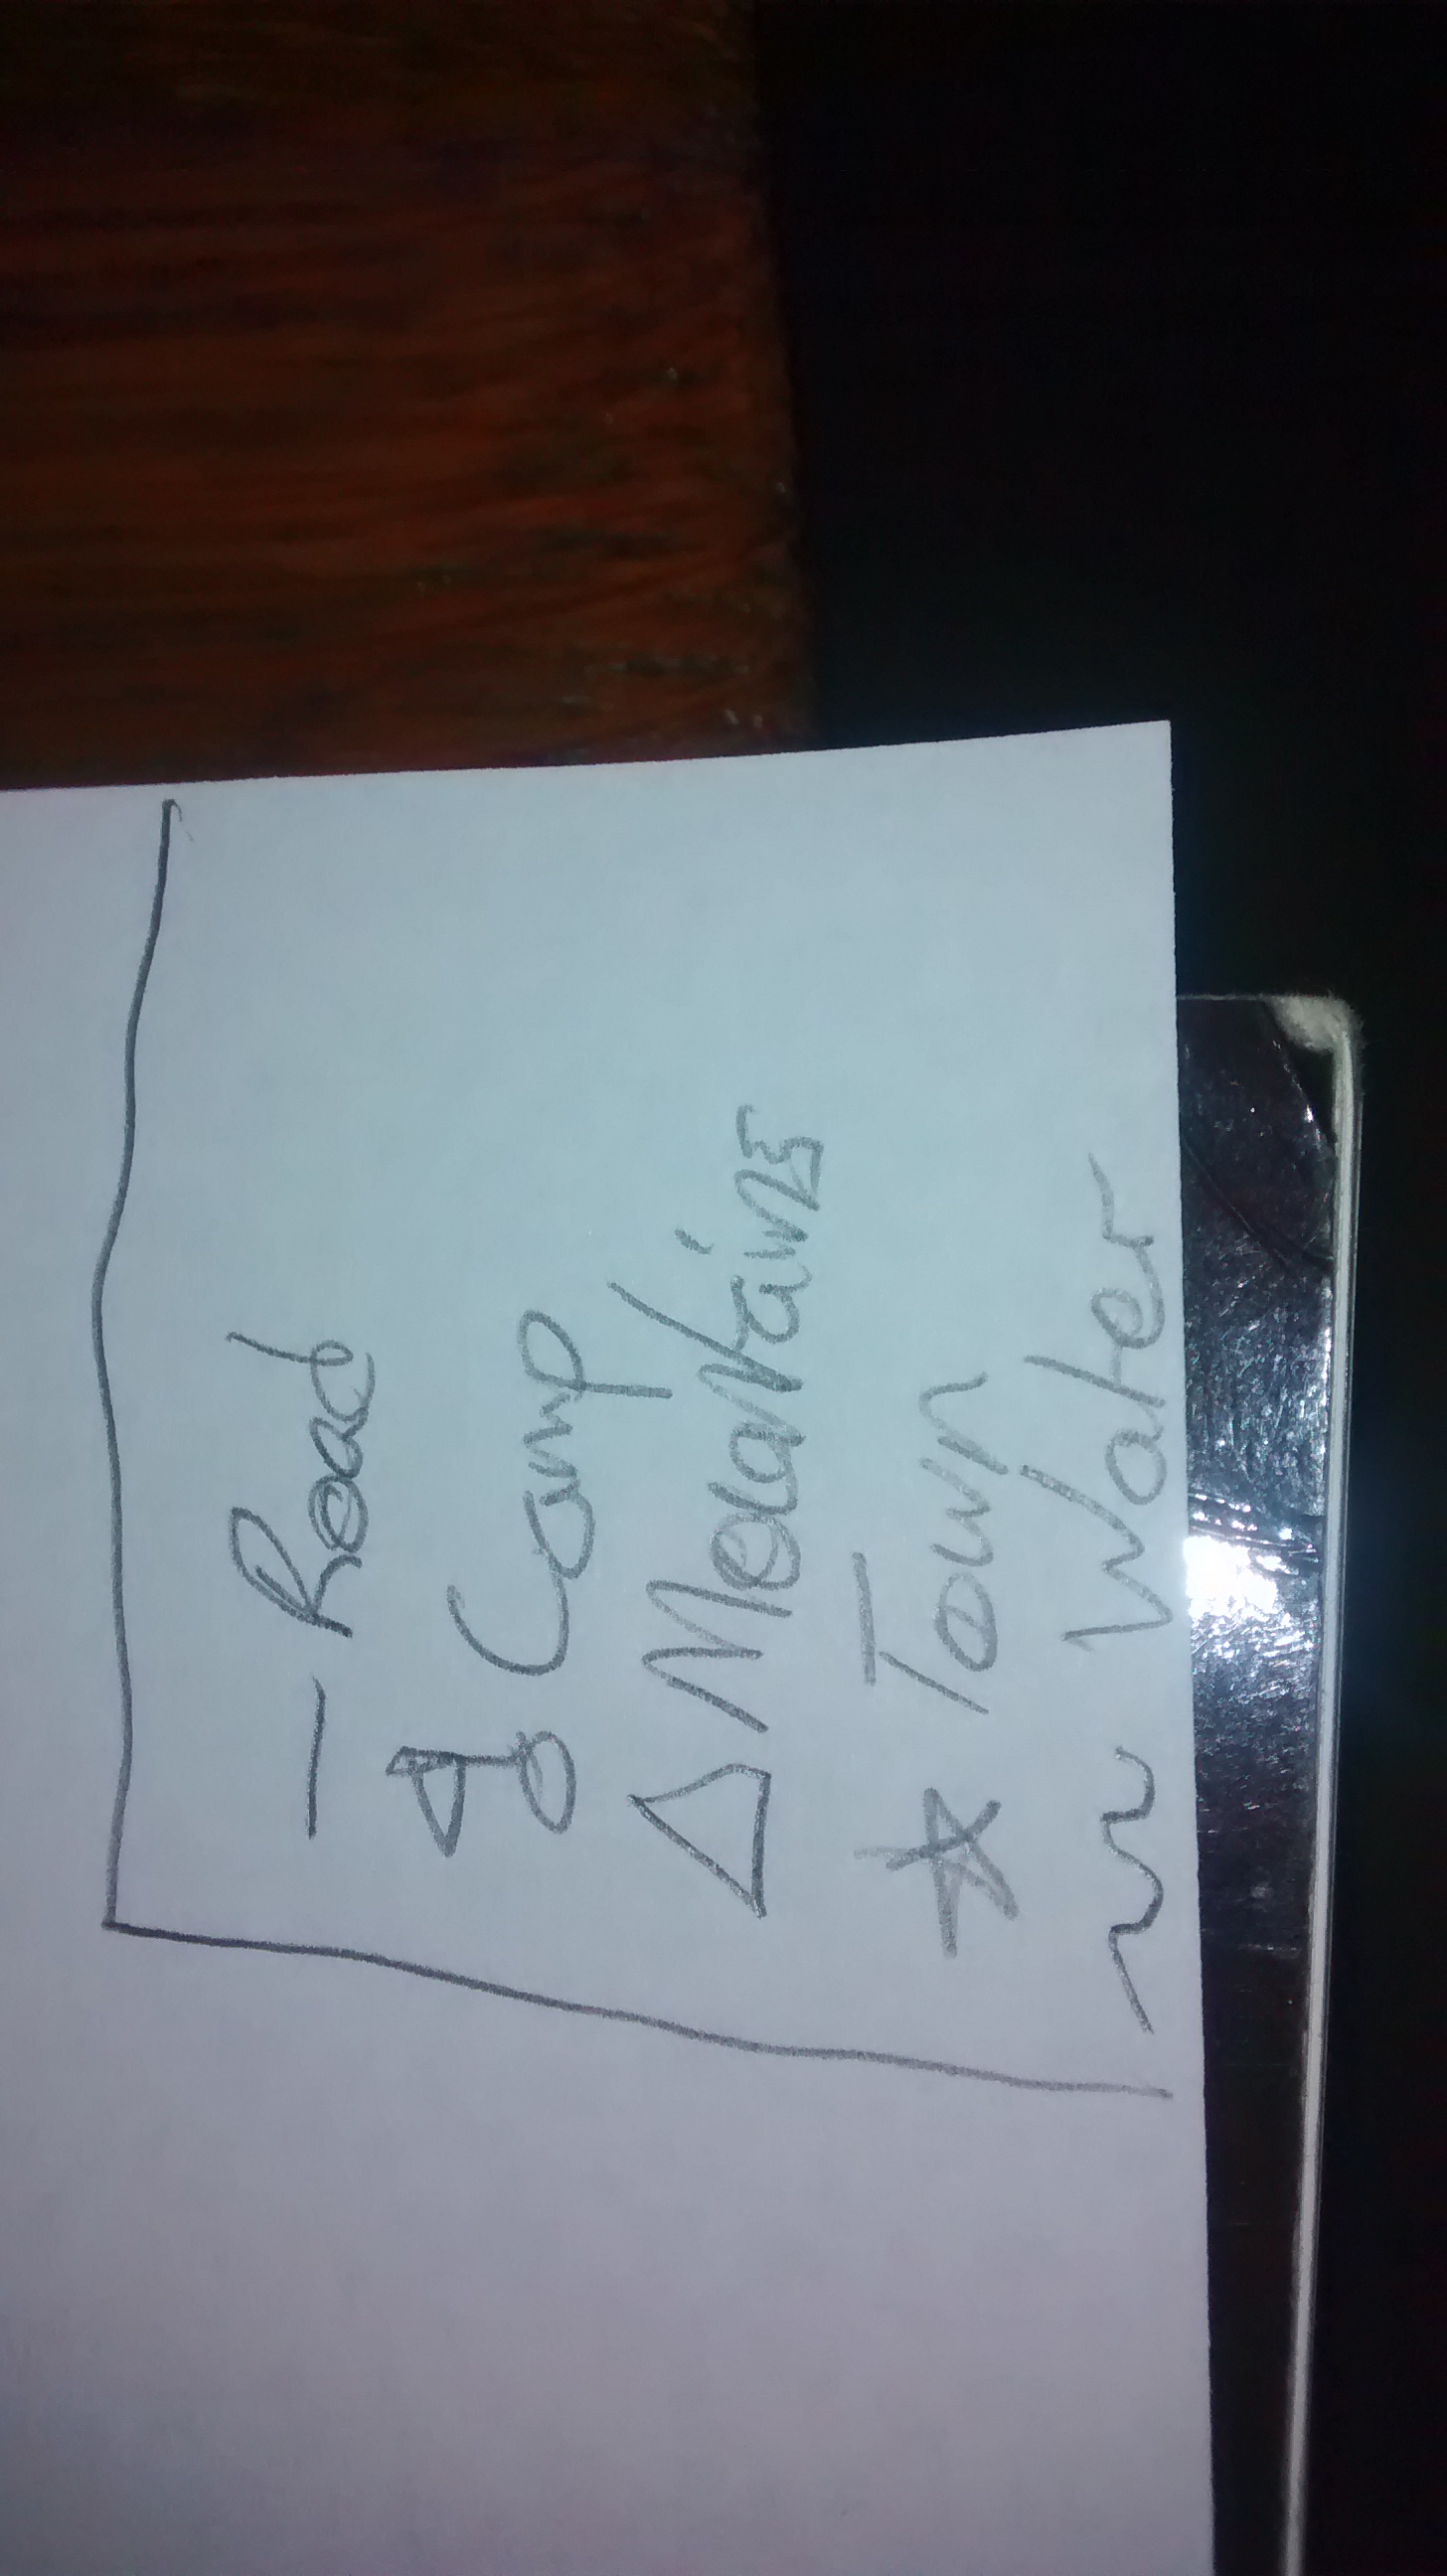 — Road
Camp
△ Mountains
☆ Town
~ Water